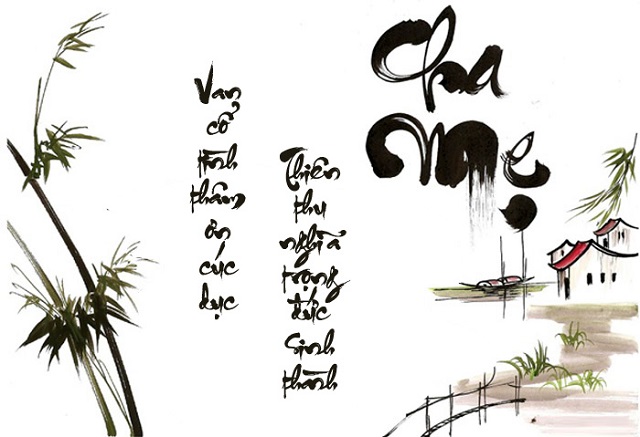 Cha
Mẹ
Vạn cổ tình thâm ơn cúc dục
Thiên thu nghĩa trọng đức sinh thành